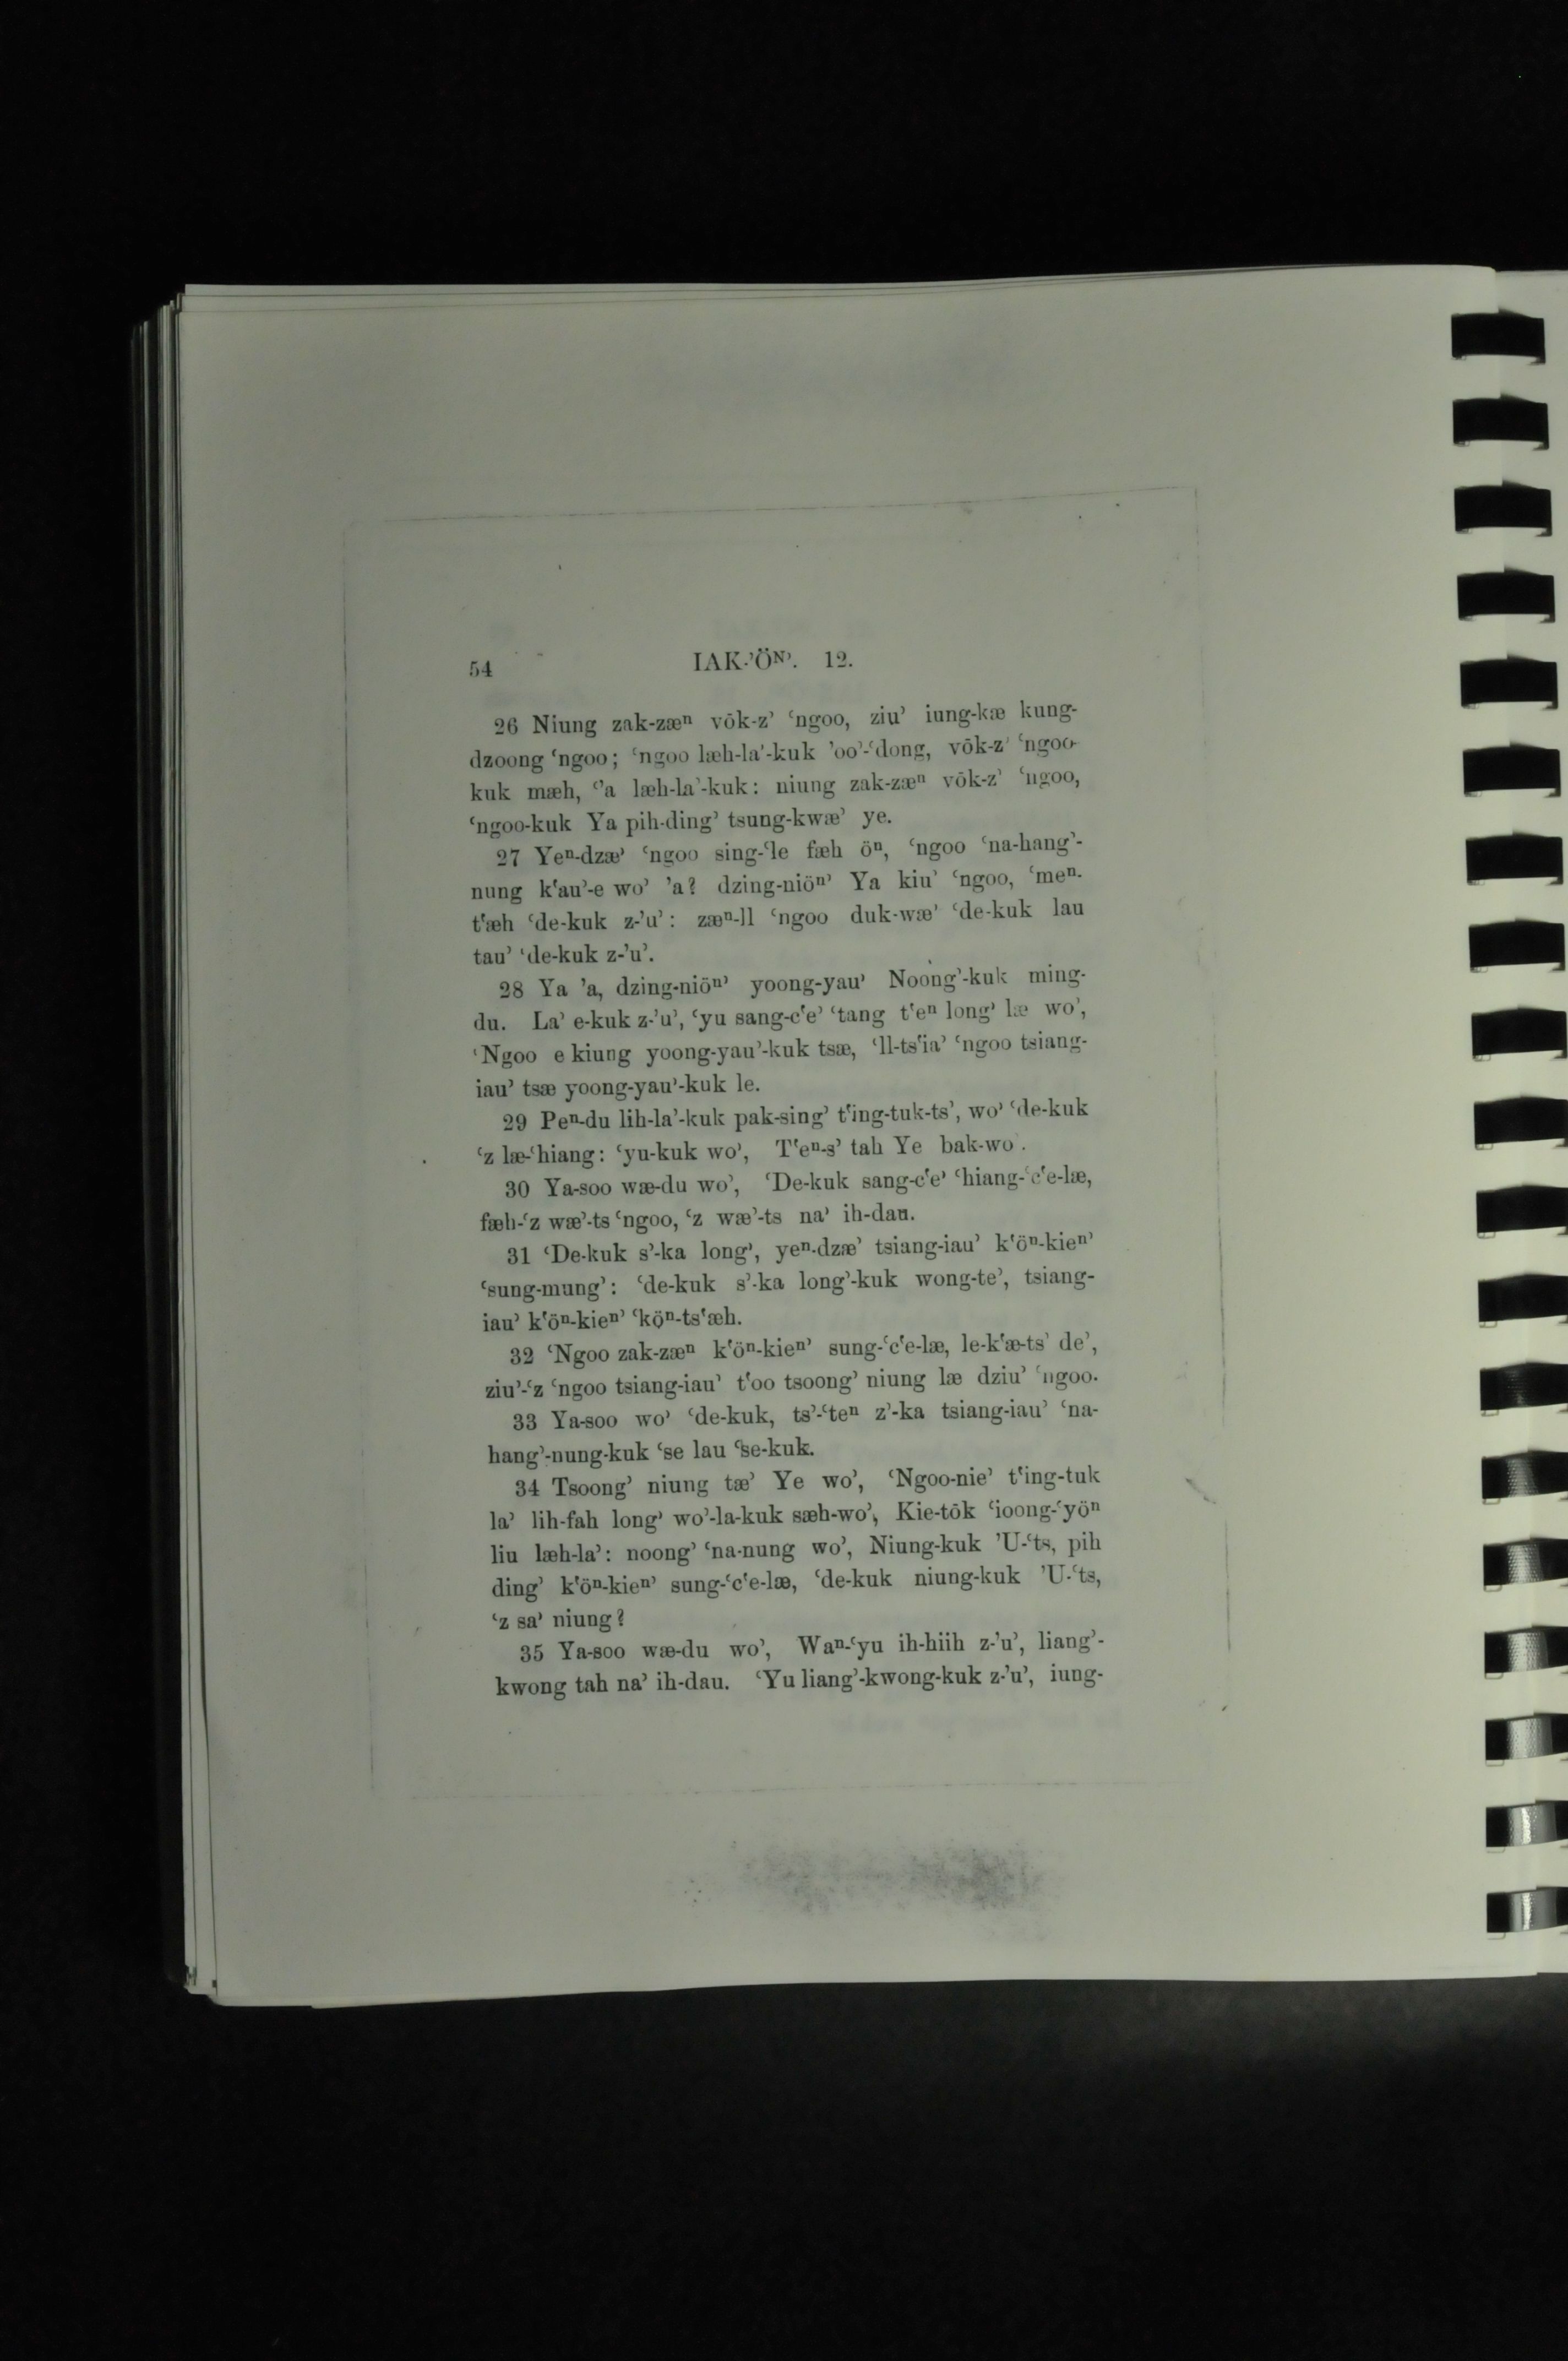 54 IAK-’Öᴺ’. 12.
26 Niung zak-zæⁿ vōk-z’ ‘ngoo, ziu’ iung-kæ kung-
dzoong ‘ngoo; ‘ngoo læh-la’-kuk ’oo’-‘dong, vōk-z’ ‘ngoo-
kuk mæh, ‘’a læh-la’-kuk: niung zak-zæⁿ vōk-z’ ‘ngoo,
‘ngoo-kuk Ya pih-ding’ tsung-kwæ’ ye.
27 Yeⁿ-dzæ’ ‘ngoo sing-‘le fæh öⁿ, ‘ngoo ‘na-hang’-
nung k‘au’-e wo’ ’a? dzing-niöⁿ’ Ya kiu’ ‘ngoo, ‘meⁿ-
t‘æh ‘de-kuk z-’u’: zæⁿ-ll ‘ngoo duk-wæ’ ‘de-kuk lau
tau’ ‘de-kuk z-’u’.
28 Ya ’a, dzing-niöⁿ’ yoong-yau’ Noong’-kuk ming-
du. La’ e-kuk z-’u’, ‘yu sang-c‘e’ ‘tang t‘eⁿ long’ læ wo’,
‘Ngoo e kiung yoong-yau’-kuk tsæ, ‘ll-ts‘ia’ ‘ngoo tsiang-
iau’ tsæ yoong-yau’-kuk le.
29 Peⁿ-du lih-la’-kuk pak-sing’ t‘ing-tuk-ts’, wo’ ‘de-kuk
‘z læ-‘hiang: ‘yu-kuk wo’, T‘eⁿ-s’ tah Ye bak-wo’.
30 Ya-soo wæ-du wo’, ‘De-kuk sang-c‘e’ ‘hiang-‘c‘e-læ,
fæh-‘z wæ’-ts ‘ngoo, ‘z wæ’-ts na’ ih-dau.
31 ‘De-kuk s’-ka long’, yeⁿ-dzæ’ tsiang-iau’ k‘öⁿ-kieⁿ’
‘sung-mung’: ‘de-kuk s’-ka long’-kuk wong-te’, tsiang-
iau’ k‘öⁿ-kieⁿ’ ‘köⁿ-ts‘æh.
32 ‘Ngoo zak-zæⁿ k‘öⁿ-kieⁿ’ sung-‘c‘e-læ, le-k‘æ-ts’ de’,
ziu’-‘z ‘ngoo tsiang-iau’ t‘oo tsoong’ niung læ dziu’ ‘ngoo.
33 Ya-soo wo’ ‘de-kuk, ts’-‘teⁿ z’-ka tsiang-iau’ ‘na-
hang’-nung-kuk ‘se lau ‘se-kuk.
34 Tsoong’ niung tæ’ Ye wo’, ‘Ngoo-nie’ t‘ing-tuk
la’ lih-fah long’ wo’-la-kuk sæh-wo’, Kie-tōk ‘ioong-‘yöⁿ
liu læh-la’: noong’ ‘na-nung wo’, Niung-kuk ’U-‘ts, pih
ding’ k‘öⁿ-kieⁿ’ sung-‘c‘e-læ, ‘de-kuk niung-kuk ’U-‘ts,
‘z sa’ niung?
35 Ya-soo wæ-du wo’, Waⁿ-‘yu ih-hiih z-’u’, liang’-
kwong tah na’ ih-dau. ‘Yu liang’-kwong-kuk z-’u’, iung-